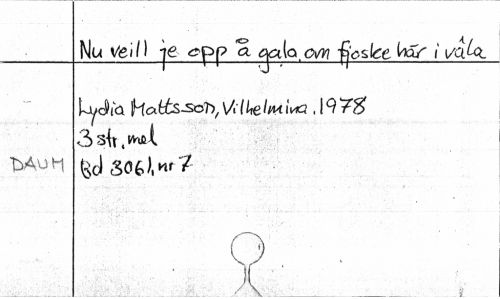 Nu veill je opp å gala om fjoske här i våla
Lydia Mattsson, Vilhelmina. 1978
3 str, mel
DAUM Bd 3061, nr 7